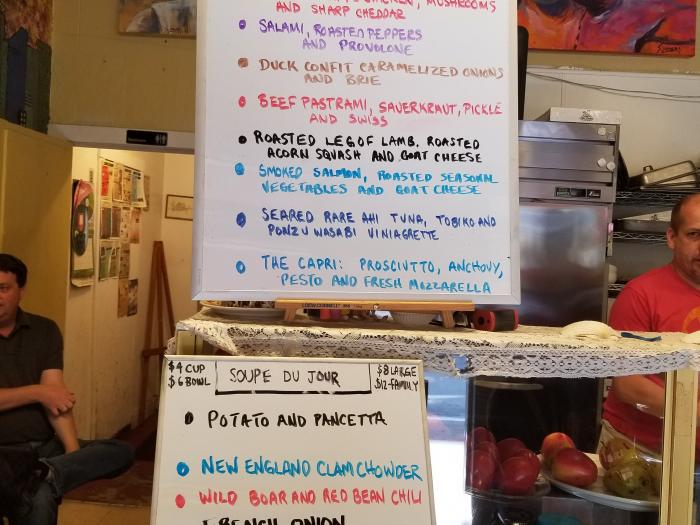 CHICKEN, MUSHROOMS
AND SHARP CHEDDAR
SALAMI, ROASTED PEPPERS
AND PROVOLONE
DUCK CONFIT CARAMELIZED ONIONS
AND BRIE
BEEF PASTRAMI, SAUERKRAUT, PICKLE
AND SWISS
ROASTED LEG OF LAMB, ROASTED
ACORN SQUASH AND GOAT CHEESE
SMOKED SALMON, ROASTED SEASONAL
VEGETABLES AND GOAT CHEESE
SEARED RARE AHI TUNA, TOBIKO AND
PONZU WASABI VINIAGRETTE
THE CAPRI: PROSCIUTTO, ANCHOVY,
PESTO AND FRESH MOZZARELLA
$4 CUP
$6 BOWL
SOUPE DU JOUR
$8 LARGE
$12-FAMILY
POTATO AND PANCETTA
NEW ENGLAND CLAM CHOWDER
WILD BOAR AND RED BEAN CHILI
FRENCH ONION